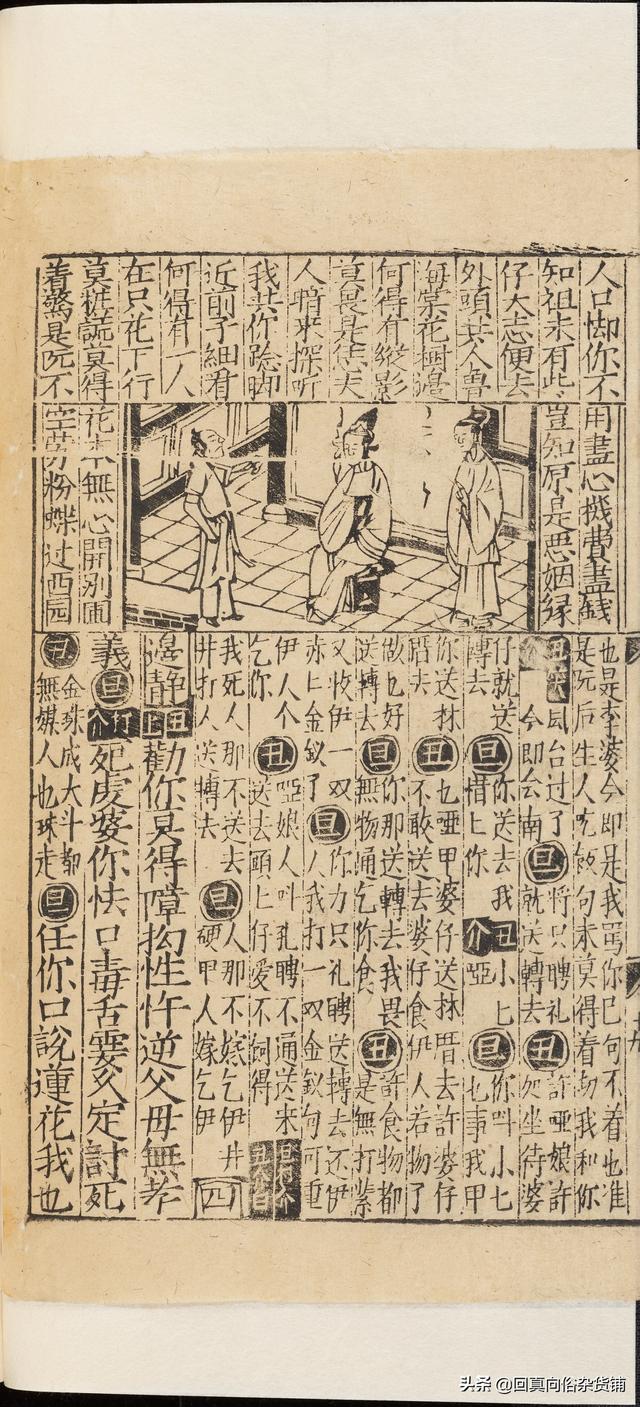 人只你不
知祖未有些
仔大志便去
外頭共人魯
海棠花樹邊
何得有縱影
莫畏是恁夫
人暗來探听
我共你跪脚
近前子細看
何得有一人
在只花下行
莫粧謊莫得
着驚是阮不
用盡心機費盡錢
豈知原是惡姻緣
花本無心開別圃
空勞粉蝶过西园
也是李婆今即是我罵你巳句不着也准
是阮后生人吃飯句未莫得着劫我和你
丑笑介風台过了今即会南旦將只聘礼就送轉去丑許啞娘許处坐待婆
仔就送轉去旦你送去我惜上你丑介小七啞旦你叫小七也事我甲
你送林蹈去丑乜啞甲婆仔送林厝去許婆仔不敢送去婆仔食伊人若物了
做乜好送轉去旦你那送轉去我畏無物通乞你食丑許食物都是無打緊
又收伊一双赤上金釵了旦你力只礼聘送轉去还伊人我打一双金釵句可重
伊人个乞你丑啞娘人叫孔聘不通送來送去頭上仔爱不何得旦行介丑介白
我死人那不送去井打人送轉去旦人那不嫁乞伊井硬甲人嫁乞伊四
邊静丑上勸你莫得障拗性忤逆父母無孝
義旦打介死虔婆你怯口毒舌霎久定討死
丑金珠成大斗都無媒人也珠走旦任你口說蓮花我也
头条 @回真向俗杂货铺